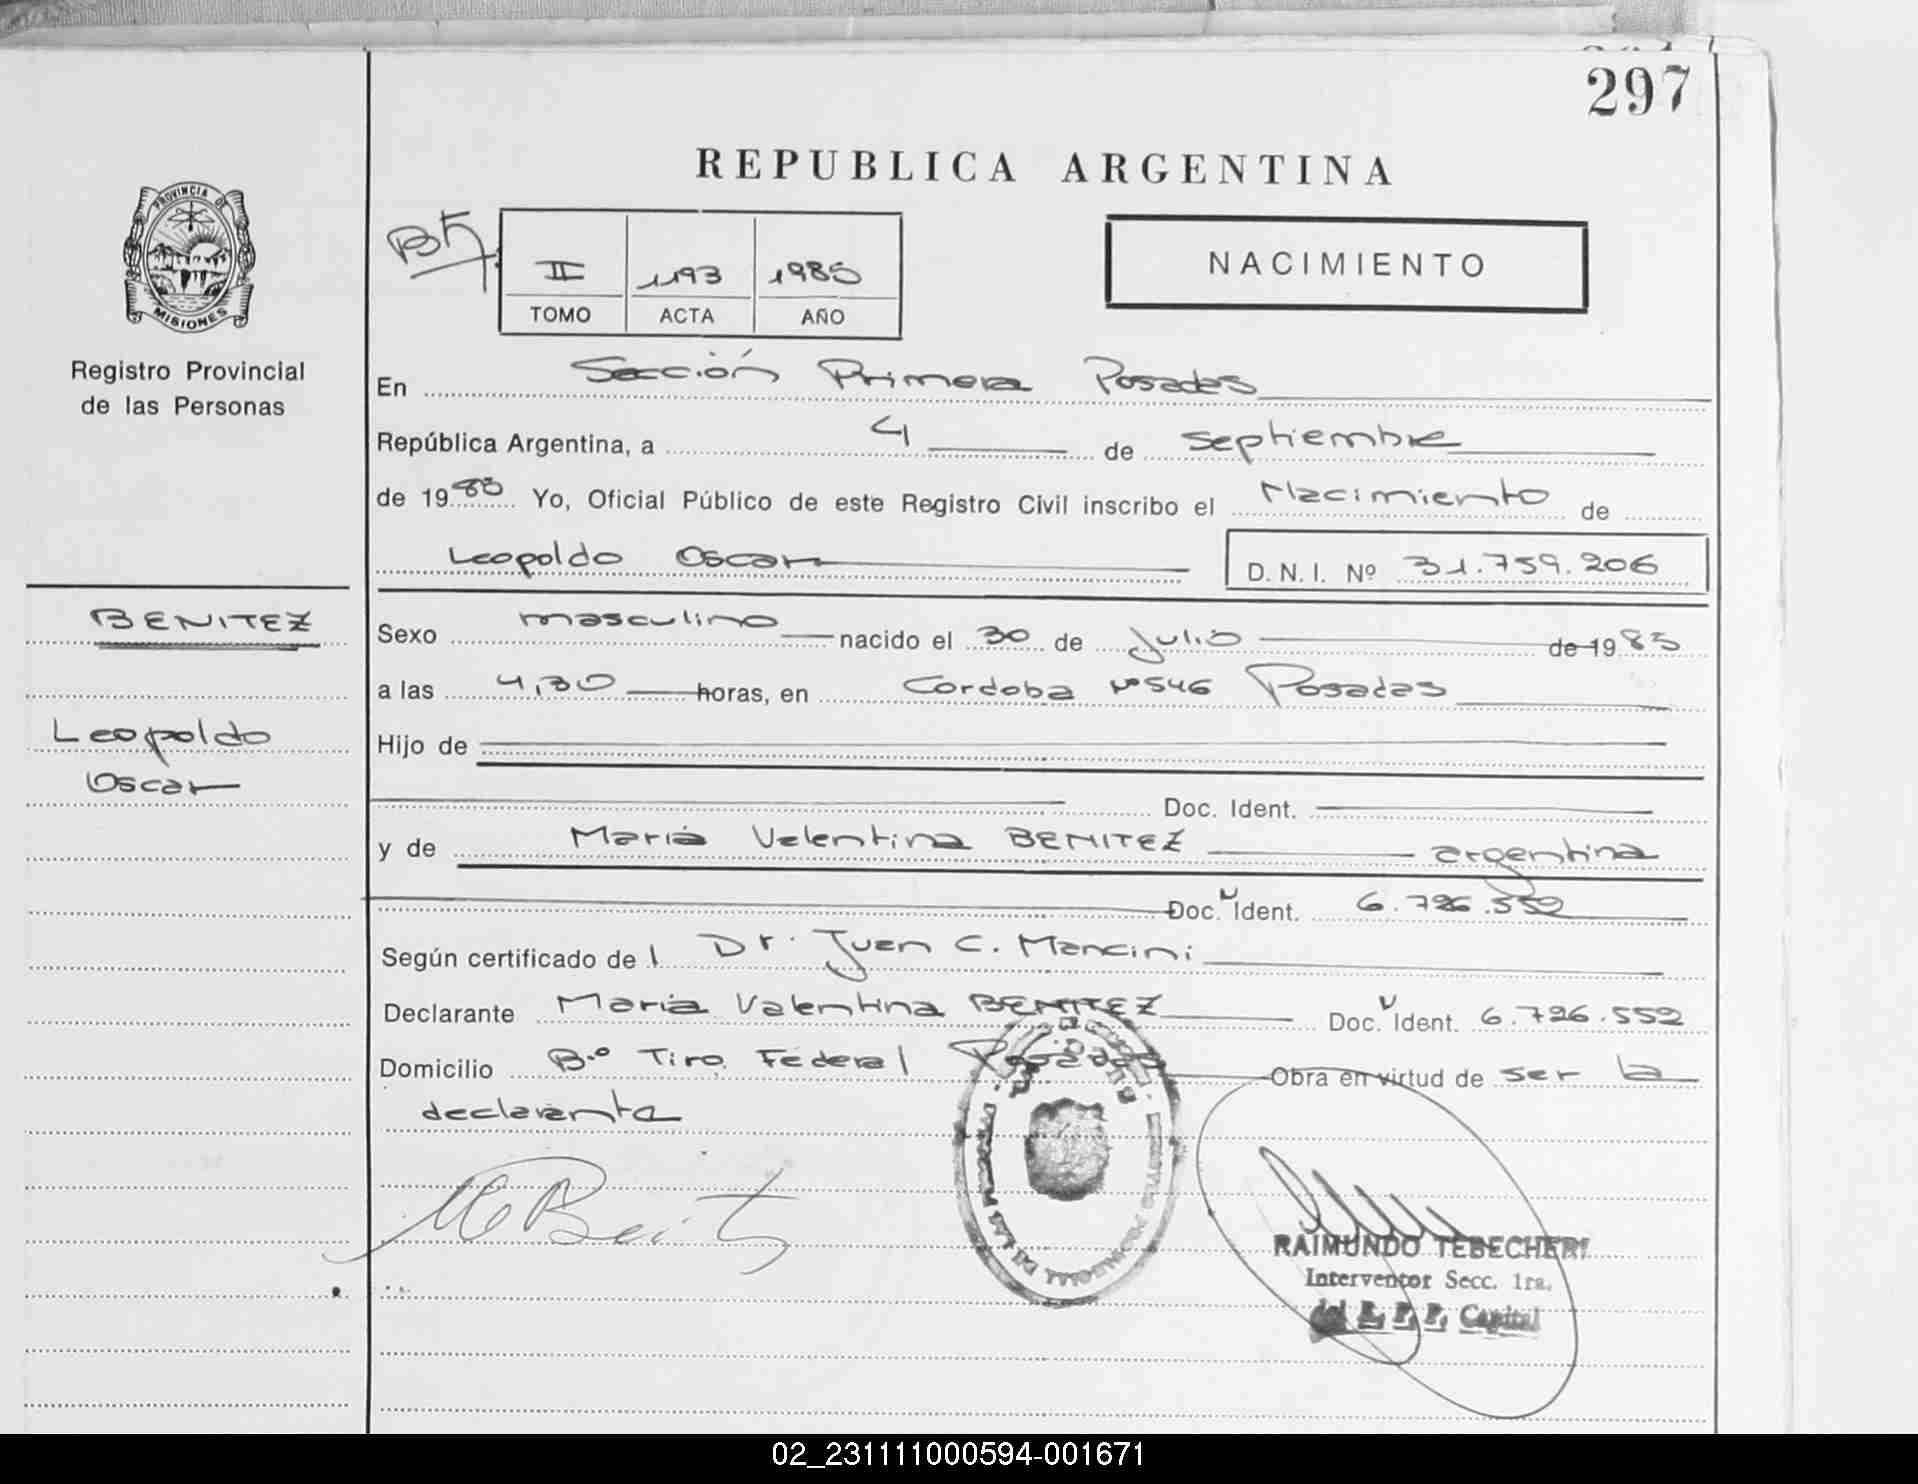 297
REPUBLICA ARGENTINA
PROVINCIA DE
MISIONES
Registro Provincial
de las Personas
II 1193 1985
TOMO ACTA AÑO
NACIMIENTO
En Sección Primera Posadas
República Argentina, a 4 de septiembre
de 1985 Yo, Oficial Público de este Registro Civil inscribo el Nacimiento de
Leopoldo Oscar D. N. I. Nº 31.759.206
BENITEZ
Leopoldo
Oscar
Sexo masculino nacido el 30 de Julio de 1985
a las 4,30 horas, en Cordoba Nº 546 Posadas
Hijo de
Doc. Ident.
y de María Valentina BENITEZ argentina
Doc. Ident. 6.726.552
Según certificado del Dr. Juan C. Mancini
Declarante María Valentina BENITEZ Doc. Ident. 6.726.552
Domicilio Bº Tiro Federal Posadas Obra en virtud de ser la
declarante
RAIMUNDO TEBECHERI
Interventor Secc. 1ra.
del R. P. P. Capital
02_231111000594-001671